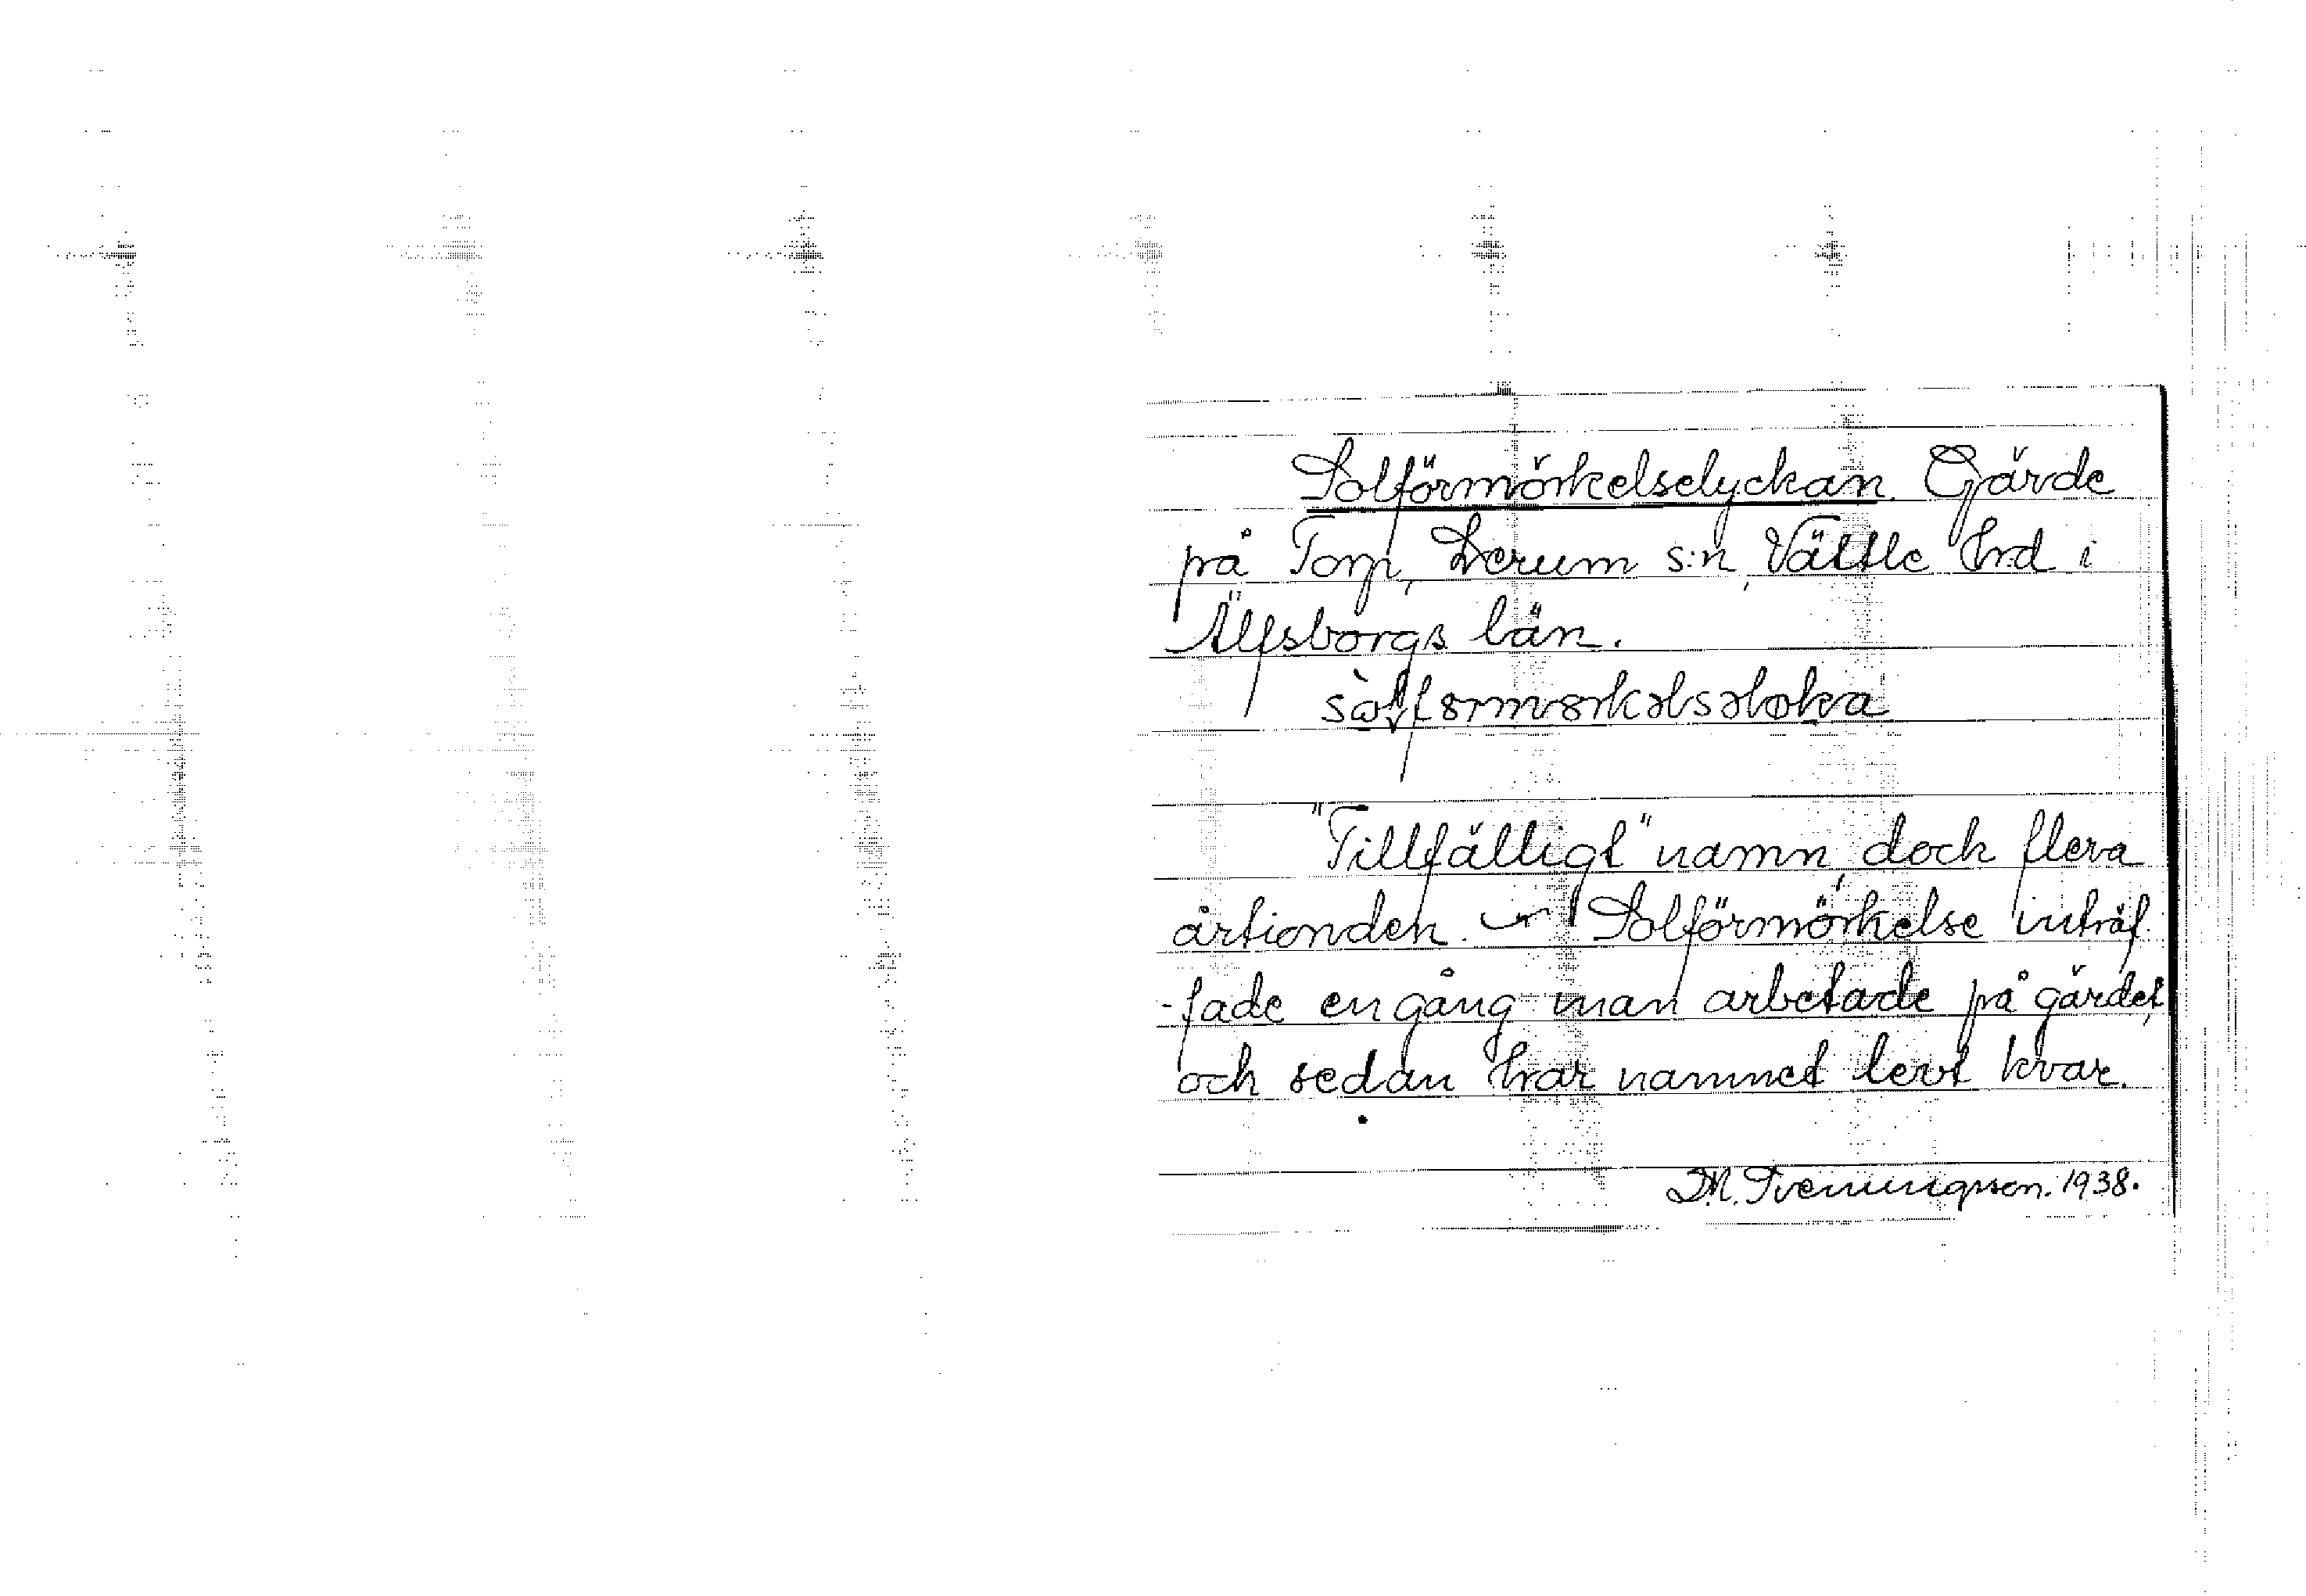 Solförmörkelselyckan. Gärde
på Torp, Lerum s:n, Vättle hrd i
Älfsborgs län.
"Tillfälligt" namn, dock flera
årtionden. Solförmörkelse inträf-
-fade en gång man arbetade på gärdet,
och sedan har namnet levt kvar.
D.M. Sveningsson. 1938.